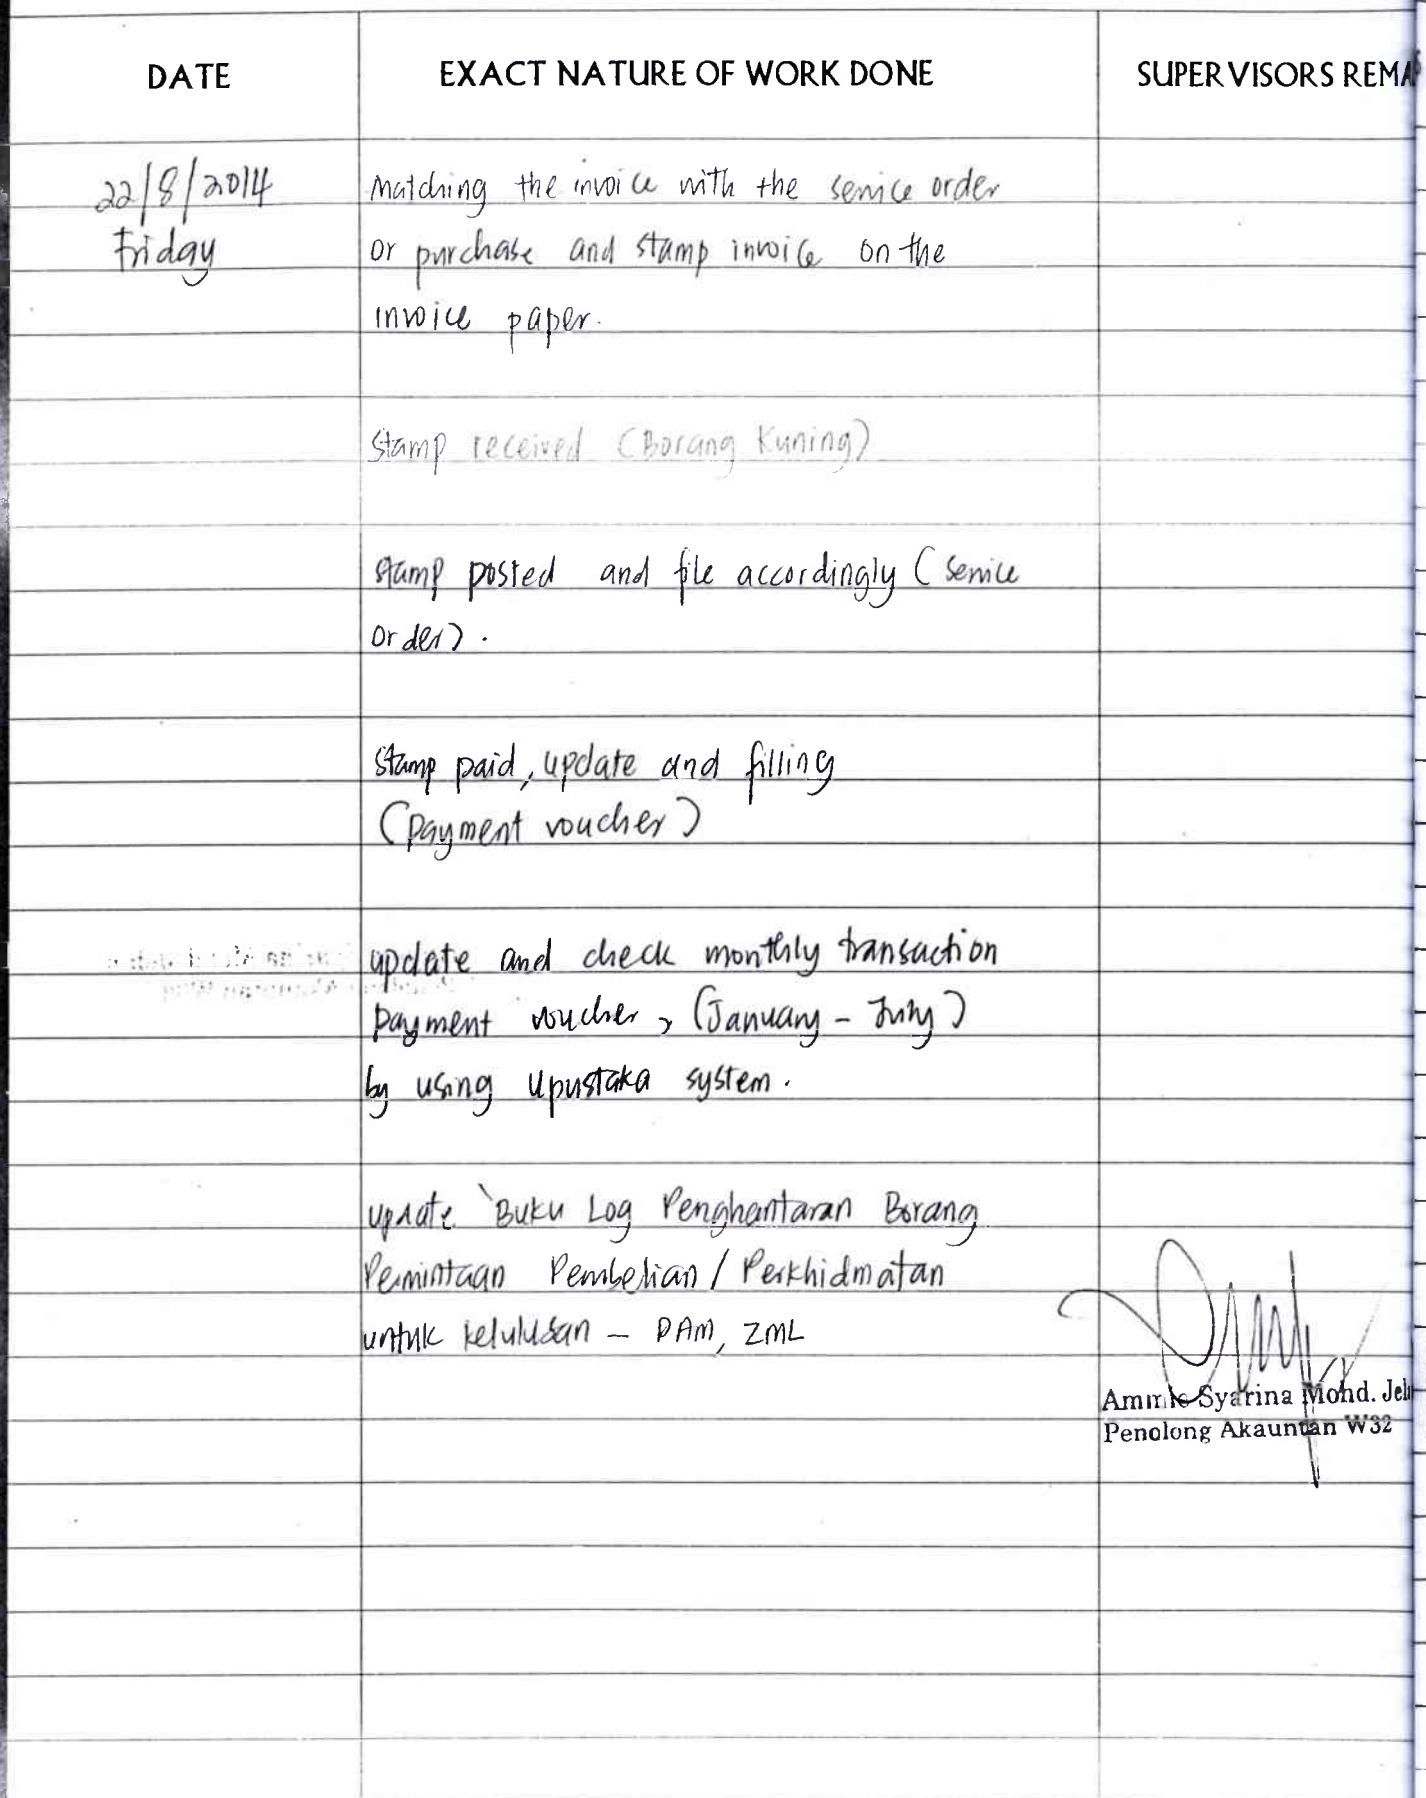 DATE
EXACT NATURE OF WORK DONE
SUPERVISORS REMA
22/8/2014
Friday
Matching the invoice with the service order
or purchase and stamp invoice on the
invoice paper.
Stamp received (Borang Kuning)
stamp posted and file accordingly (Service
Order).
Stamp paid, update and filling
(payment voucher)
update and check monthly transaction
payment voucher, (January - July)
by using Upustaka system.
update `Buku Log Penghantaran Borang
Permintaan Pembelian / Perkhidmatan
untuk kelulusan - PAM, ZML
Syarina Mohd. Jel
Penolong Akauntan W32